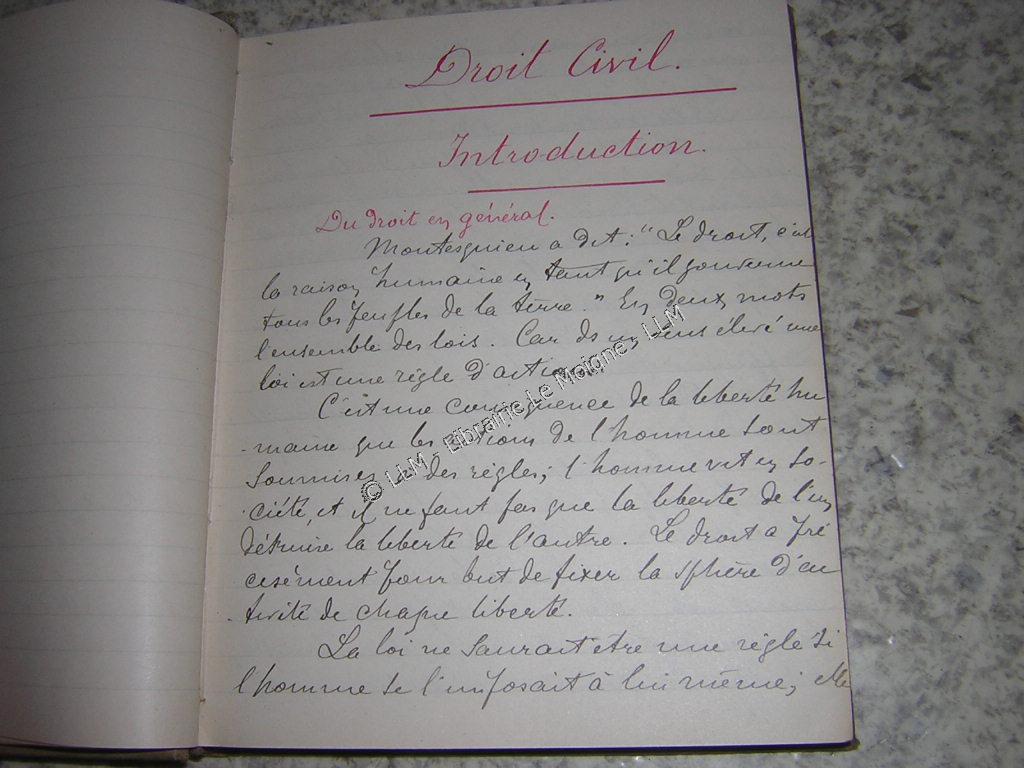 Droit Civil.
Introduction.
Du droit en général.
Montesquieu a dit : " Le droit, c'est
la raison humaine en tant qu'il gouverne
tous les peuples de la terre. " En deux mots
l'ensemble des lois. Car ds un sens élevé une
loi est une règle d'action.
C'est une conséquence de la liberté hu
- maine que les actions de l'homme sont
soumises à des règles ; l'homme vit en so-
- ciété, et il ne faut pas que la liberté de l'un
détruise la liberté de l'autre. Le droit a pré
cisément pour but de fixer la sphère d'ac
- tivité de chaque liberté.
La loi ne saurait être une règle si
l'homme se l'imposait à lui même ; elle
© LLM - Librairie Le Moigne - LLM